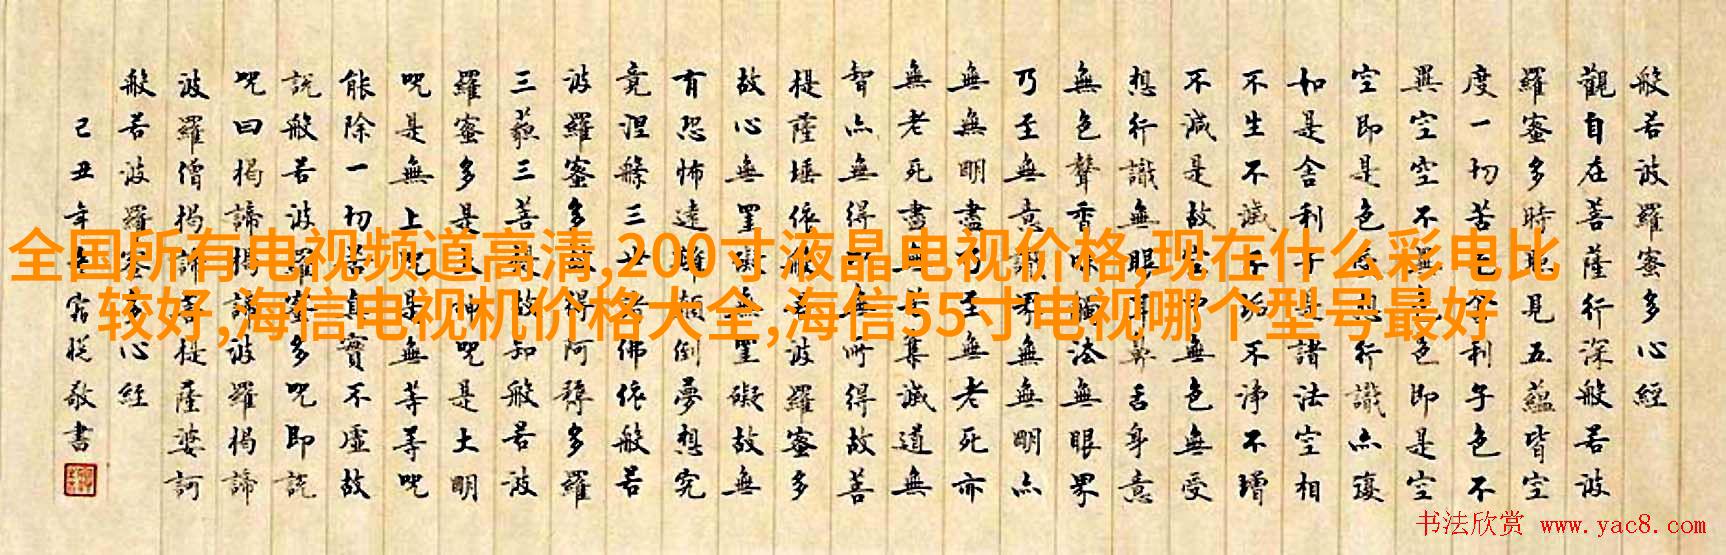 般若波羅蜜多心經
觀自在菩薩行深般若波
羅蜜多時照見五蘊皆空
度一切苦厄舍利子色不
異空空不異色色即是空
空即是色受想行識亦復
如是舍利子是諸法空相
不生不滅不垢不淨不增
不減是故空中無色無受
想行識無眼耳鼻舌身意
無色聲香味觸法無眼界
乃至無意識界無無明亦
無無明盡乃至無老死亦
無老死盡無苦集滅道無
智亦無得以無所得故菩
提薩埵依般若波羅蜜多
故心無罣礙無罣礙故無
有恐怖遠離顛倒夢想究
竟涅槃三世諸佛依般若
波羅蜜多故得阿耨多羅
三藐三菩提故知般若波
羅蜜多是大神咒是大明
咒是無上咒是無等等咒
能除一切苦真實不虛故
說般若波羅蜜多咒即說
咒曰揭諦揭諦波羅揭諦
波羅僧揭諦菩提薩婆訶
般若波羅蜜多心經
己丑年敬書
全国所有电视频道高清,200寸液晶电视价格,现在什么彩电比
较好,海信电视机价格大全,海信55寸电视哪个型号最好
书法欣赏 www.yac8.com